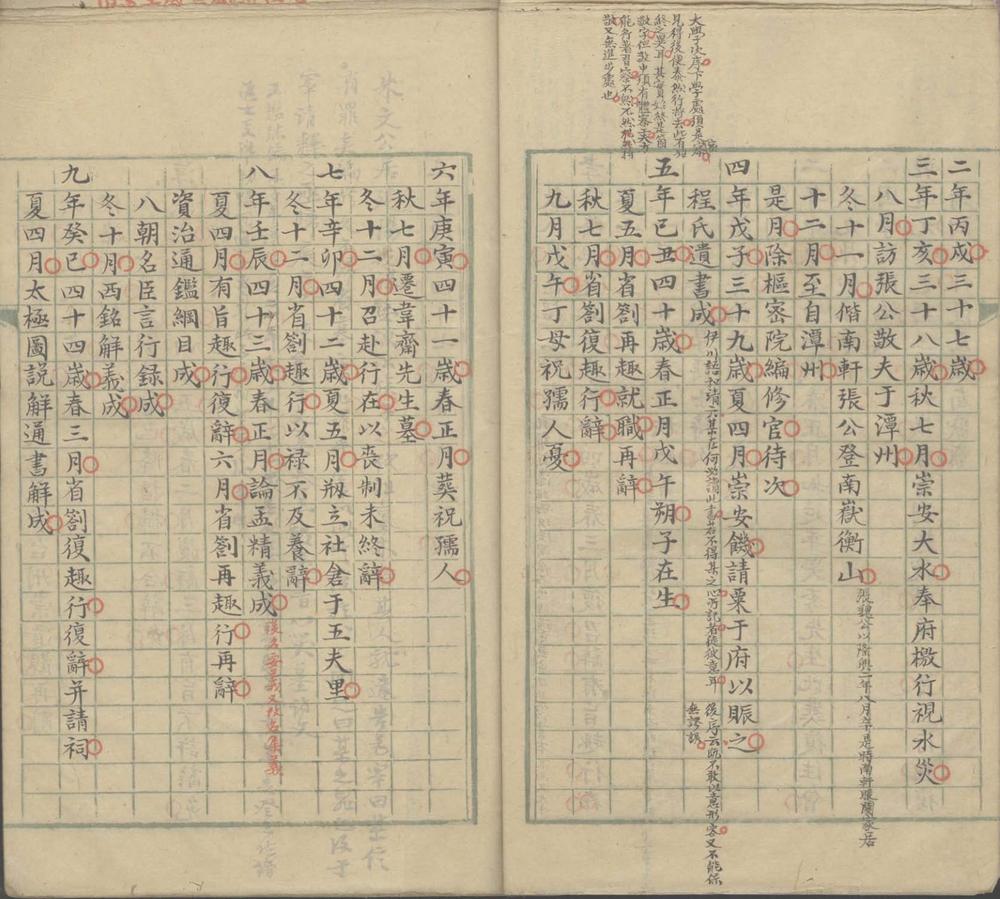 二年丙戌三十七歳
三年丁亥三十八歳秋七月崇安大水奉府檄行視水災
八月訪張公敬夫于潭州
冬十一月偕南軒張公登南嶽衡山
張魏公以隆興二年八月卒是時南軒服闋家居
十二月至自潭州
是月除樞密院編修官待次
四年戊子三十九歳夏四月崇安饑請粟于府以賑之
程氏遺書成
後序云既不敢以意形容又不能保
無謬誤
五年己丑四十歳春正月戊午朔子在生
夏五月省劄再趣就職再辭
秋七月省劄復趣行辭
九月戊午丁母祝孺人憂
六年庚寅四十一歳春正月葬祝孺人
秋七月遷韋齋先生墓
冬十二月召赴行在以喪制未終辭
七年辛卯四十二歳夏五月剏立社倉于五夫里
冬十二月省劄趣行以禄不及養辭
八年壬辰四十三歳春正月論孟精義成
後名要義又改名集義
夏四月有旨趣行復辭六月省劄再趣行再辭
資治通鑑綱目成
八朝名臣言行録成
冬十月西銘解義成
九年癸巳四十四歳春三月省劄復趣行復辭并請祠
夏四月太極圖説解通書解成